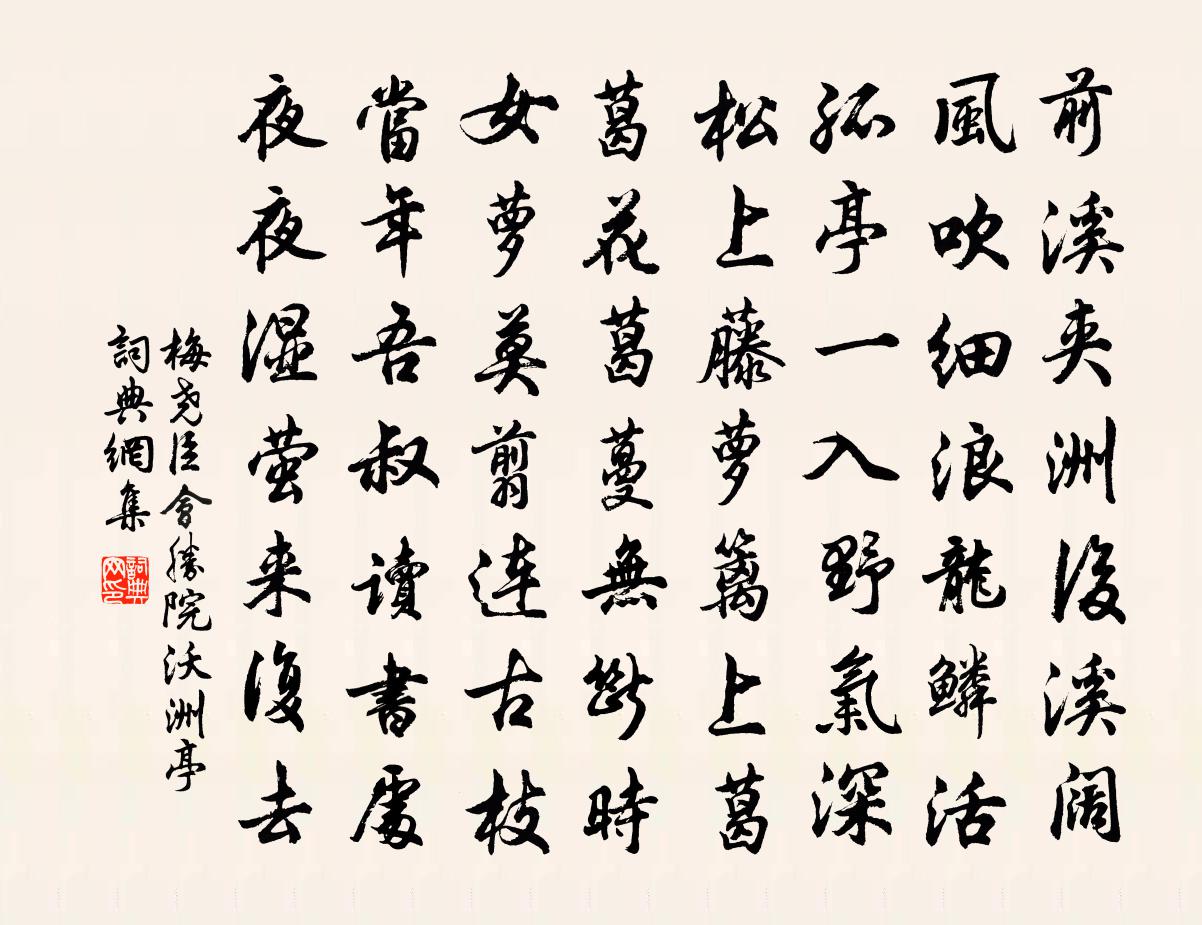 前溪夾洲後溪闊
風吹細浪龍鱗活
孤亭一入野氣深
松上藤蘿籬上葛
葛花葛蔓無斷時
女蘿莫翦連古枝
當年吾叔讀書處
夜夜濕螢来復去
梅尧臣會勝院沃洲亭
詞典網集
詞典网印